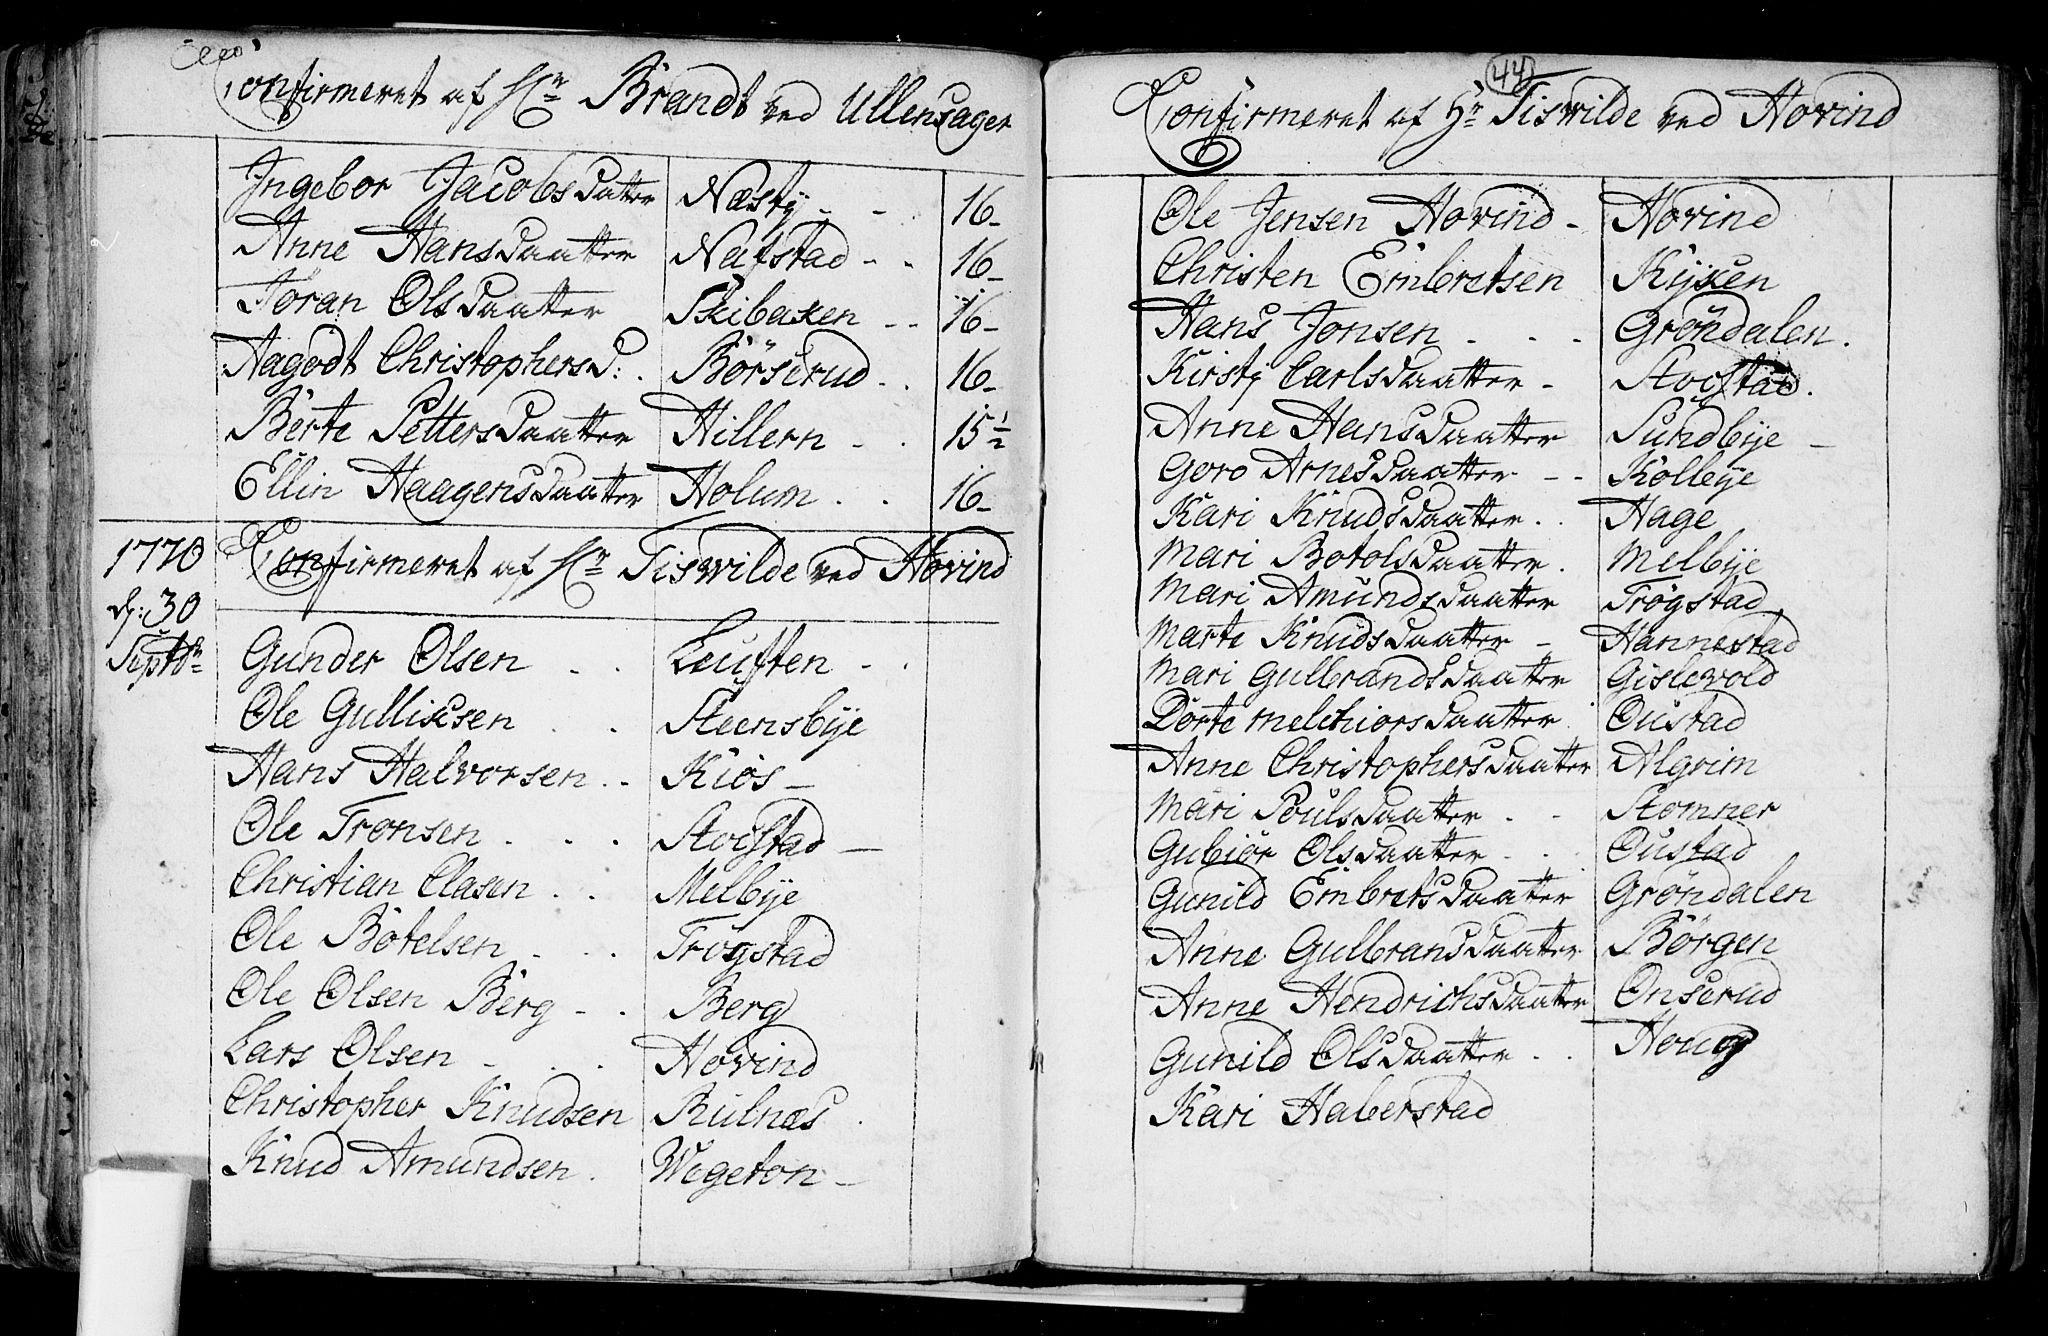 Confirmeret af Hr Brandt ved Ullensager
Ingebor Jacobsdatter Næsty - - 16-
Anne Hansdaatter Nafstad - - 16-
Joran Olsdaatter Skibaken - - 16-
Aagodt Christophersd: Børserud - . 16-
Berte Pettersdaatter Hillern - . 15 1/2
Ellin Haagensdaatter Holum . . 16-
1770 Confirmeret af Hr Tiswilde ved Hovind
d: 30
Septbr
Gunder Olsen - . Leuften - .
Ole Gullicsen . . Steensbye
Hans Halvorsen . . Kiøs -
Ole Tronsen . . . Stocstad -
Christian Clasen . . Melbye
Ole Botelsen - . . Trøgstad
Ole Olsen Berg - . Berg
Lars Olsen - . . Hovind
Christopher Knudsen Rulnæs .
Knud Amundsen . Wegeton -
44
Confirmeret af Hr Tiswilde ved Hovind
Ole Jensen Hovind - Hovind
Christen Embretsen Kyxen
Hans Jonsen . . . Grøndalen .
Kirsty Carlsdaatter - Stocstad .
Anne Hansdaatter Sundbye -
Goro Arnesdaatter - - Kolleye
Kari Knudsdaatter . . Hage
Mari Botolsdaatter . Melbye
Mari Amundsdaatter Trøgstad
Marte Knudsdaatter - Hannestad
Mari Gulbrandsdaatter Gislevold
Dorte Melchiorsdaatter Oustad
Anne Christophersdaatter Algrim
Mari Poulsdaatter . - Stomner
Gubiør Olsdaatter - . Oustad
Gunild Embretsdaatter Grøndalen
Anne Gulbransdaatter Børgen
Anne Hendrichsdaatter Onserud
Gunild Olsdaatter . . Houg
Kari Haberstad